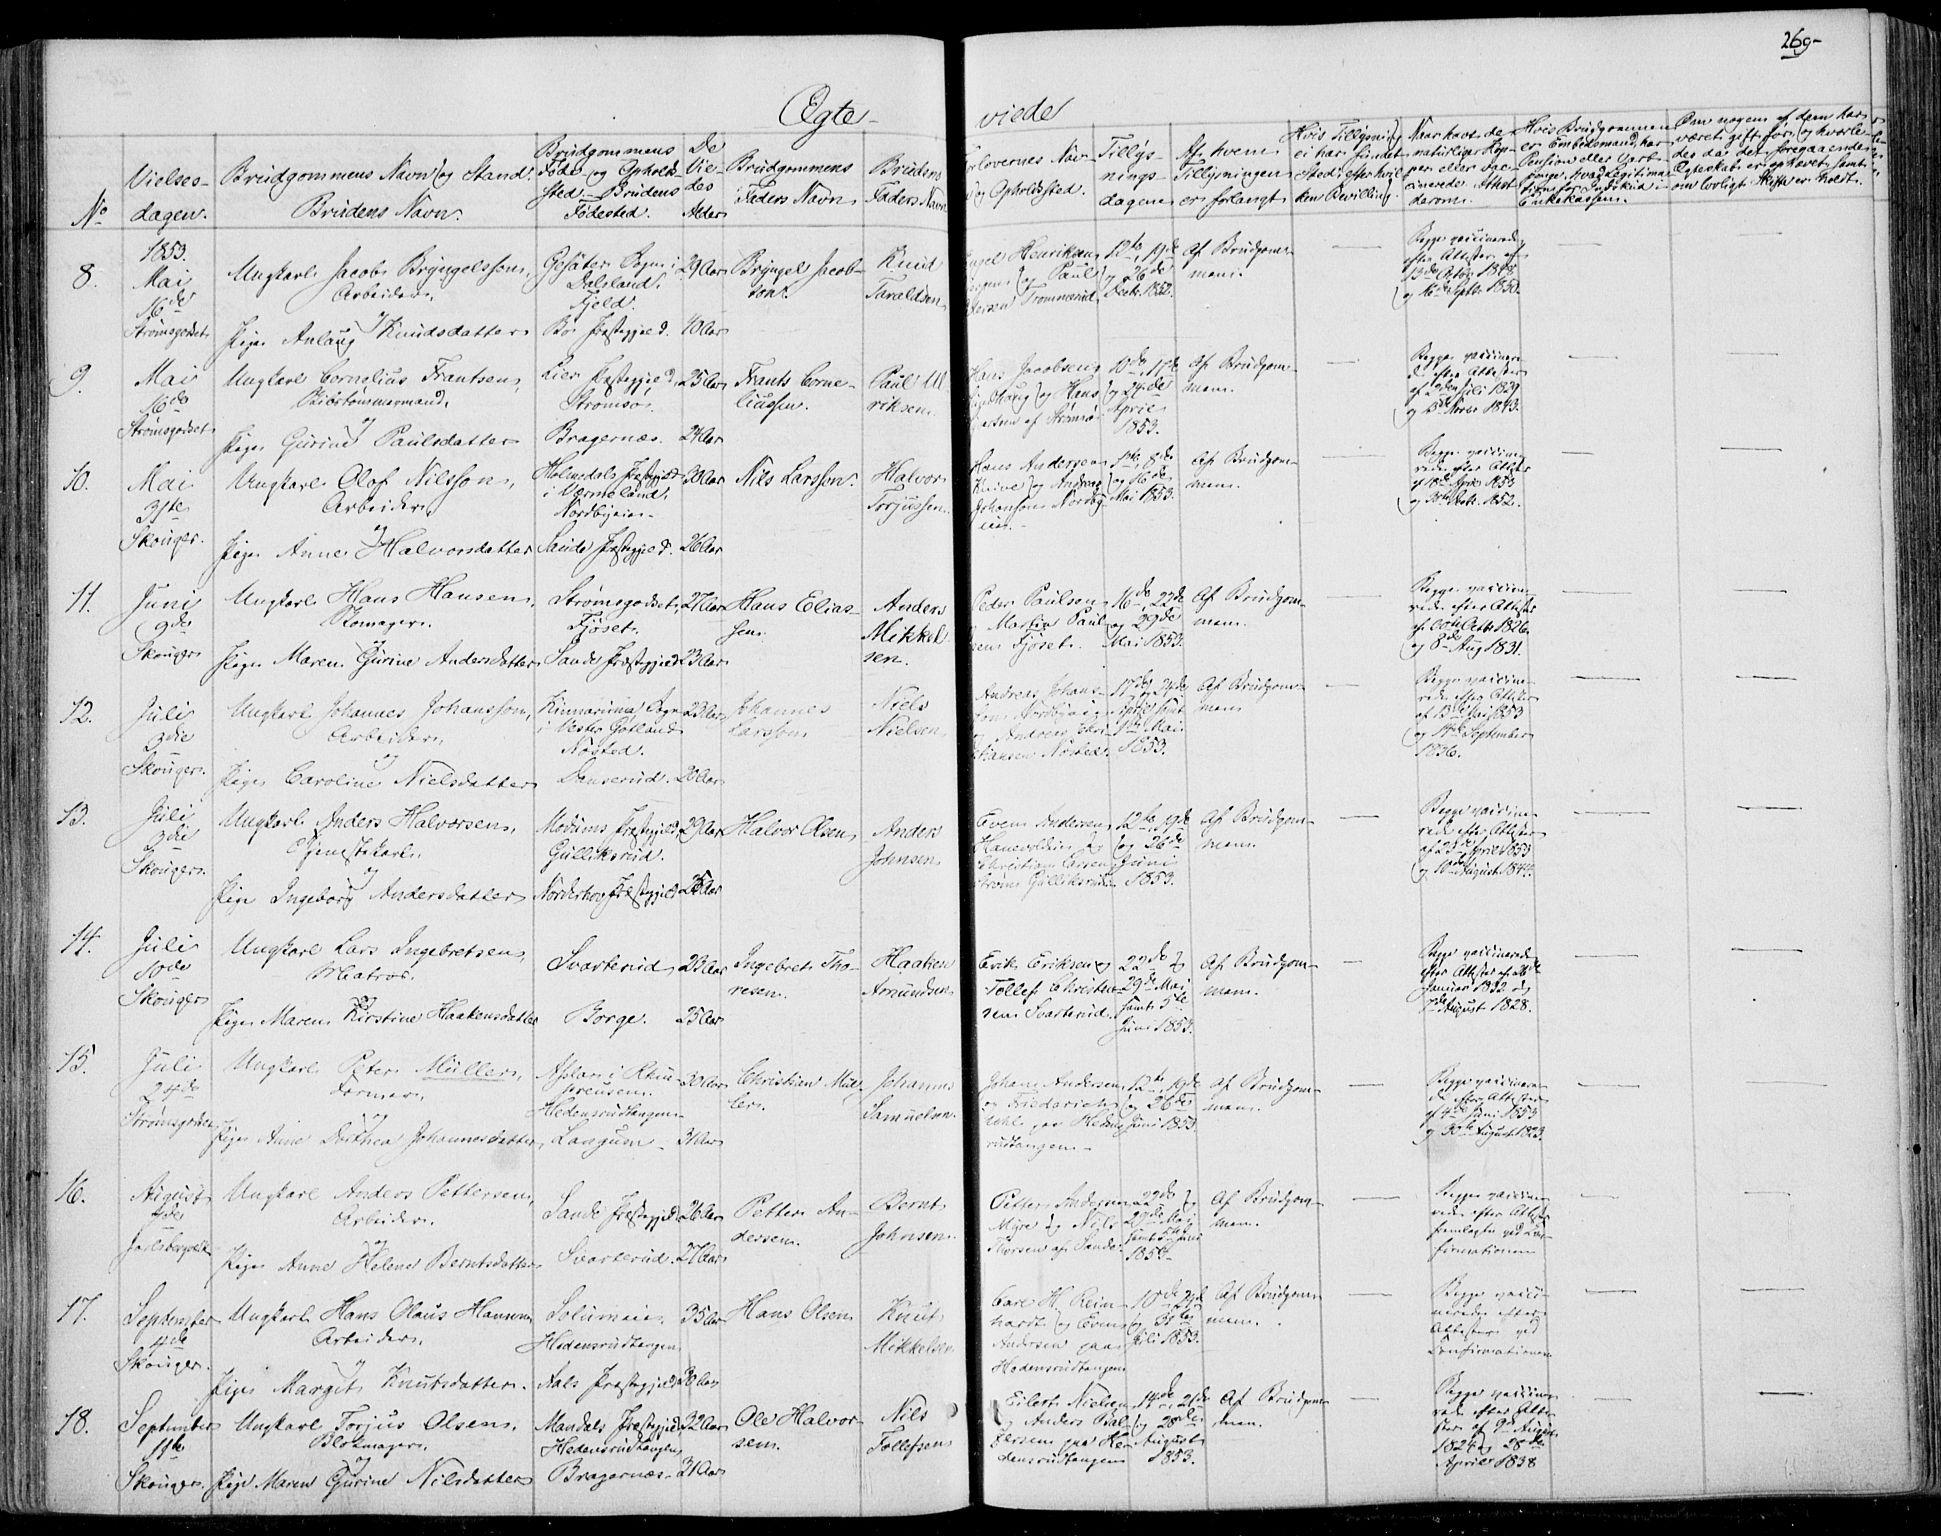 269-
Ægte-
viede
No
Vielses-
dagen.
Brudgommens Navn og Stand.
Brudens Navn.
Brudgommens
Føde- og Opholds-
sted. Brudens
Fødested.
De
Vie-
des
Alder
Brudgommens
Faders Navn
Brudens
Faders Navn
Forlovernes Navn
og Opholdssted.
Tillys-
nings-
dagene
Af hvem
Tillysningen
er forlangt
Hvis Tillysning
ei har fundet
Sted, efter hvil-
ken Bevilling.
Naar havt de
naturlige Kop-
per eller vac-
cinerede. Attest
derom.
Hvis Brudgommen
er Embedsmand, har
Pension eller Vart-
penge,
Enkekassen.
Om nogen af dem har
været gift før, og hvorle-
des da det foregaaende
Ægteskab er ophævet, samt
om lovligt Skifte er holdt.
8.
1853.
Mai
16de
Strømsgodset
Ungkarl Jacob Bryngelsson,
Arbeider.
og
Pige Anlaug Knudsdatter
Gesäter Sogn i
Dalsland.
Fjeld.
Bø Præstegjeld.
29 Aar
40 Aar
Bryngel Jacob-
son.
Knud
Taraldsen
Henriksen
og Paul
Trommerud
12te, 19de
og 26de
Decbr. 1852.
Af Brudgom-
men.
Begge vaccinerede
efter Attester af
13de
og 16de Septbr. 1830.
9.
Mai
16de
Strømsgodset
Ungkarl Cornelius Frantsen,
Skibstømmermand.
og
Pige Gurine Paulsdatter
Lier Præstegjeld,
Strømsø.
Bragernæs.
25 Aar
24 Aar
Frants Corne-
liussen.
Paul Ul-
riksen.
Hans Jacobsen
og Hans
af Strømsø
10de, 17de
og 24de
April
1853.
Af Brudgom-
men.
Begge vaccinere-
de efter Attester
af 2den Juli 1829
og 5de Novbr 1843.
10.
Mai
31te
Skouger.
Ungkarl Olof Nilsson,
Arbeider,
og
Pige Anne Halvorsdatter
Holmedals Præstegjeld
i Värmeland.
Nordbyeier-
Sande Præstegjeld.
30 Aar
26 Aar
Nils Larsson.
Halvor
Torjussen.
Hans Andersen
Knive og Andreas
Johansen Nordby-
eier.-
1ste, 8de
og 16de
Mai 1853.
Af Brudgom-
men.
Begge vaccine-
rede efter Attester
af 18de April 1853
og 30te Octbr. 1852.
11.
Juni
9de
Skouger
Ungkarl Hans Hansen,
Skomager.
Pige Maren Gurine Andersdatter
Strømsgodset,
Fjøset.
Sande Præstegjeld
27 Aar
23 Aar
Hans Elias-
sen.
Anders
Mikkel-
sen.
Peder Paulsen
Martin Paul-
sen Fjøset.
16de, 22de
og 29de
Mai 1853.
Af Brudgom-
men.
Begge vaccine-
rede efter Attester
af 20de Octbr 1826
og 8de Aug 1831.
12.
Juli
3die
Skouger.
Ungkarl Johannes Johansson,
Arbeider,
og
Pige Caroline Nielsdatter
Kinnaruma Sogn
i Vester Gotland
Nøsted.
Danserud.
23 Aar
20 Aar
Johannes
Larsson
Niels
Nielsen
Andreas Johan-
sen Nordbyeie
og Andreas Chri-
stiansen Nøsted.
17de, 24de
April samt
1ste Mai
1853.
Af Brudgom-
men
Begge vaccine-
rede efter Attester
af 13de Mai 1853
og 14de September
1836.
13.
Juli
3die
Skouger.
Ungkarl Anders Halvorsen,
Tjenestekarl.
og
Pige Ingeborg Andersdatter
Modums Præstegjeld,
Gulliksrud.
Norderhov Præstegjeld
29 Aar
25 Aar
Halvor Olsen
Anders
Johnsen
Even Andersen
og
Christian Larsen
Strøm Gulliksrud
12te, 19de
og 26de
Juni
1853.
Af Brudgom-
men.
Begge vaccine-
rede efter Attester
af 25de April 1853
og 10de August 1844.
14.
Juli
10de
Skouger
Ungkarl Lars Ingebretsen,
Matros.
og
Pige Maren Kirstine Haakensdatter
Svarterud
Borge.
23 Aar
25 Aar
Ingebret Tho-
resen.
Haaken
Amundsen
Erik Eriksen og
Tollef Christen-
sen Svarterud.
22de og
29de Mai
samt 5te
Juni 1853.
Af Brudgom-
men.
Begge vaccinerede
efter Attester af
Januar 1832 og
7de August 1828.
15.
Juli
24de
Strømsgodset
Ungkarl Peter Müller,
Former.
og
Pige Anne Dorthea Johannesdatter,
Asslar i Rhin-
preusen.
Hedensrudtangen-
Langum-
30 Aar
31 Aar
Christian Mül-
ler.
Johannes
Samuelsen.
Johan Andersen
og Friederich
paa Hedens-
rudtangen-
12te, 19de
og 26de
Juni 1853.
Af Brudgom-
men.
Begge vaccinere-
de efter Attester
af 4de Juni 1853
og 30te August 1823.
16.
August
7de
Jarlsberg
Ungkarl Anders Pettersen,
Arbeider.
og
Pige Anne Helene Berntsdatter
Sande Præstegjeld
Svarterud.
26 Aar
27 Aar
Petter An-
dessen.
Bernt
Johnsen.
Petter Andersen
Myre og Nils
Thorsen af Sande.
22de og
29de Mai
samt 5te Juni
1853-
Af Brudgom-
men.
Begge vaccine-
rede efter Attest
fremlagte ved Con-
firmationen
17.
September
4de
Skouger.
Ungkarl Hans Olaus Hansen,
Arbeider.
og
Pige Margit Knutsdatter.
Solumeie,
Hedensrudtangen
Aals Præstegjeld
35 Aar
30 Aar
Hans Olsen
Knut
Mikkelsen
Carl H. Rein-
hardt og Even
Andersen paa
Hedensrudtangen
10de, 24de
og 31te
Juli 1853.
Af Brudgom-
men.
Begge vacci-
nerede efter
Attester ved
Confirmationen
18.
September
11te
Skouger.
Ungkarl Torjus Olsen,
Blokmager.
og
Pige Maren Gurine Nilsdatter
Mandals Præstegjeld
Hedensrudtangen
Bragernæs-
32 Aar
31 Aar
Ole Halvor-
sen.
Nils
Tollefsen
Eilert Nielsen
og Anders Bal-
zersen paa He-
densrudtangen
14de, 21de
og 28de
August
1853.
Af Brudgom-
men.
Begge vaccine-
rede efter Atte-
ster af 9de August
1824 og 28de
April 1838